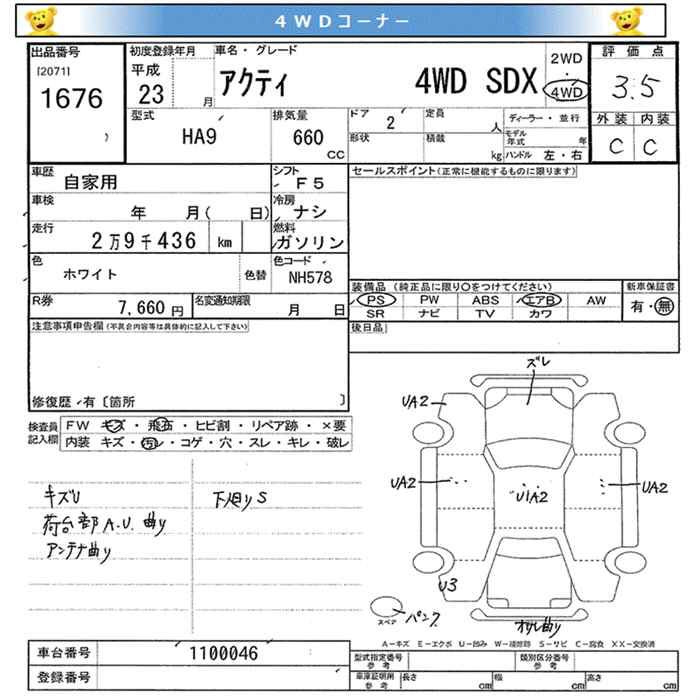 4WDコーナー
出品番号 初度登録年月 車名・グレード 評価点
[2071] 平成 アクティ 4WD SDX 2WD
1676 23 月 ・ 4WD 3.5
型式 排気量 ドア 定員 ディーラー・並行 外装 内装
HA9 660 CC 2 人 モデル年式 年 C C
形状 積載 kg ハンドル 左・右
車歴 自家用 シフト F5 セールスポイント(正常に機能するものに限ります)
車検 年 月( 日) 冷房 ナシ
走行 2万9千436 km 燃料 ガソリン
色 ホワイト 色替 色コード NH578
装備品(純正品に限り○をつけてください) 新車保証書
R券 7,660円 名変通知期限 月 日
PS PW ABS エアB AW 有・無
SR ナビ TV カワ
注意事項申告欄(不具合内容等は具体的に記入して下さい) 後日品
修復歴・有〔箇所 〕
検査員記入欄 FW キズ・飛石・ヒビ割・リペア跡・×要
内装 キズ・汚レ・コゲ・穴・スレ・キレ・破レ
ズレ
UA2
UA2 U1A2 UA2
キズU 下廻りS
荷台部A.U.曲り
アンテナ曲り
U3
スペア パンク オリレ曲り
A-キズ E-エクボ U-凹み W-補修跡 S-サビ C-腐食 XX-交換済
車台番号 1100046 型式指定番号 参考 類別区分番号 参考
登録番号 車庫証明用 参考 長さ cm 幅 cm 高さ cm